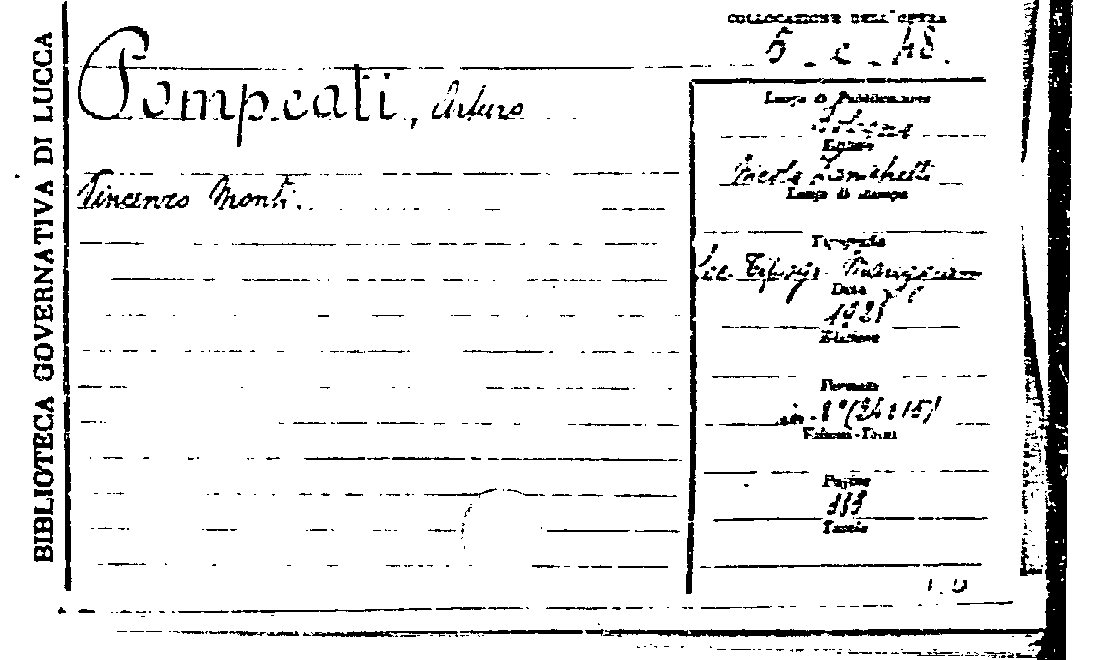 BIBLIOTECA GOVERNATIVA DI LUCCA
COLLOCAZIONE DELL'OPERA
5 - c - 48.
Pompeati, Arturo
Vincenzo Monti.
Luogo di Pubblicazione
Bologna
Editore
Nicola Zanichelli
Luogo di stampa
Tipografia
Data
1928
Edizione
Formato
in-8° (24x15)
Volumi-Tomi
Pagine
Tavole